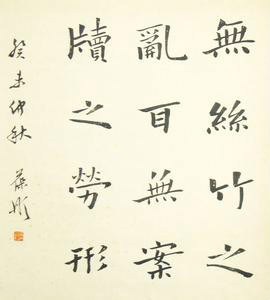 無絲竹之
亂耳無案
牘之勞形
癸未仲秋